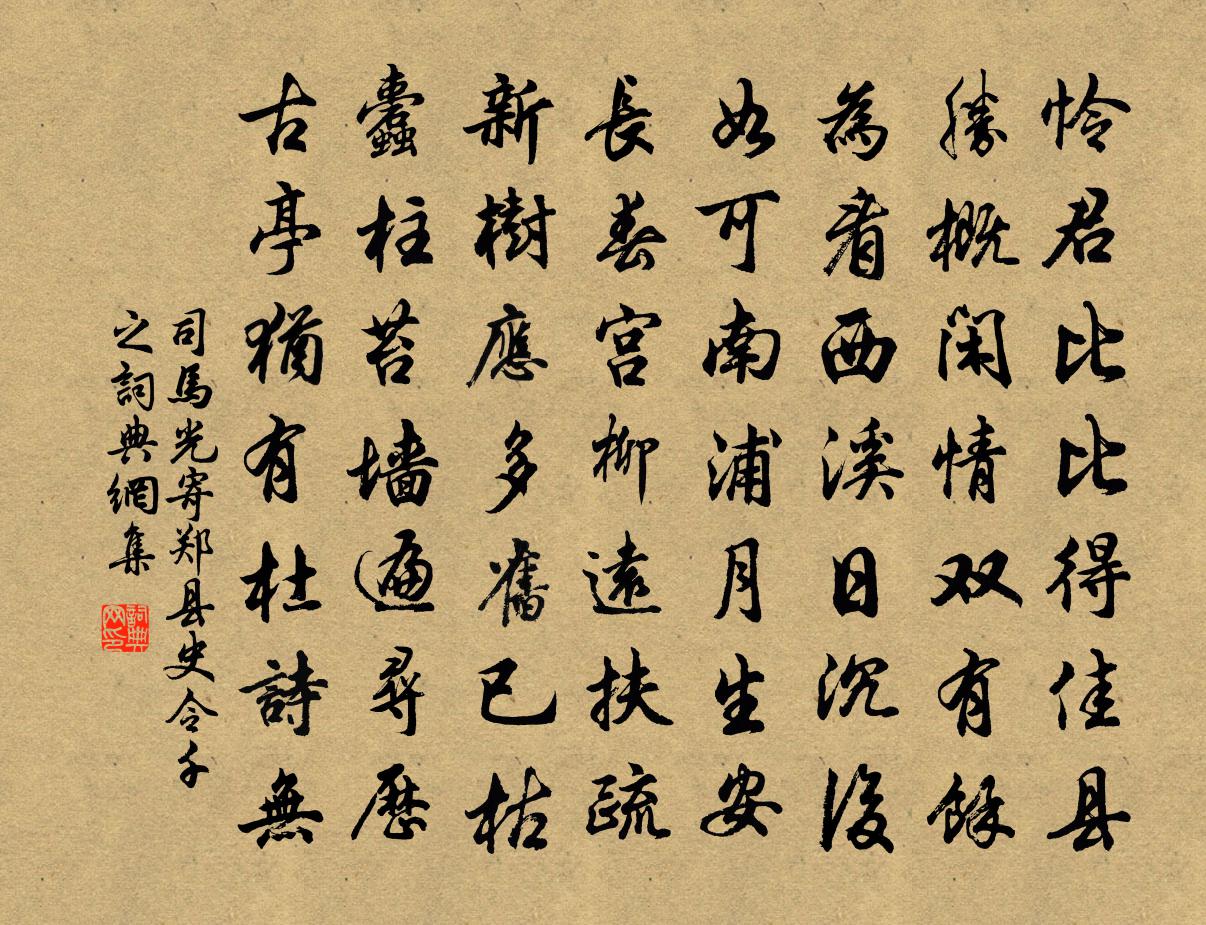 怜君比比得佳县
勝概閑情双有餘
為看西溪日沉後
如可南浦月生安
長春宫柳遠扶疏
新樹應多舊已枯
蠹柱苔墙遍尋歷
古亭猶有杜詩無
司馬光寄郑县史令千
之詞典網集
詞典网印